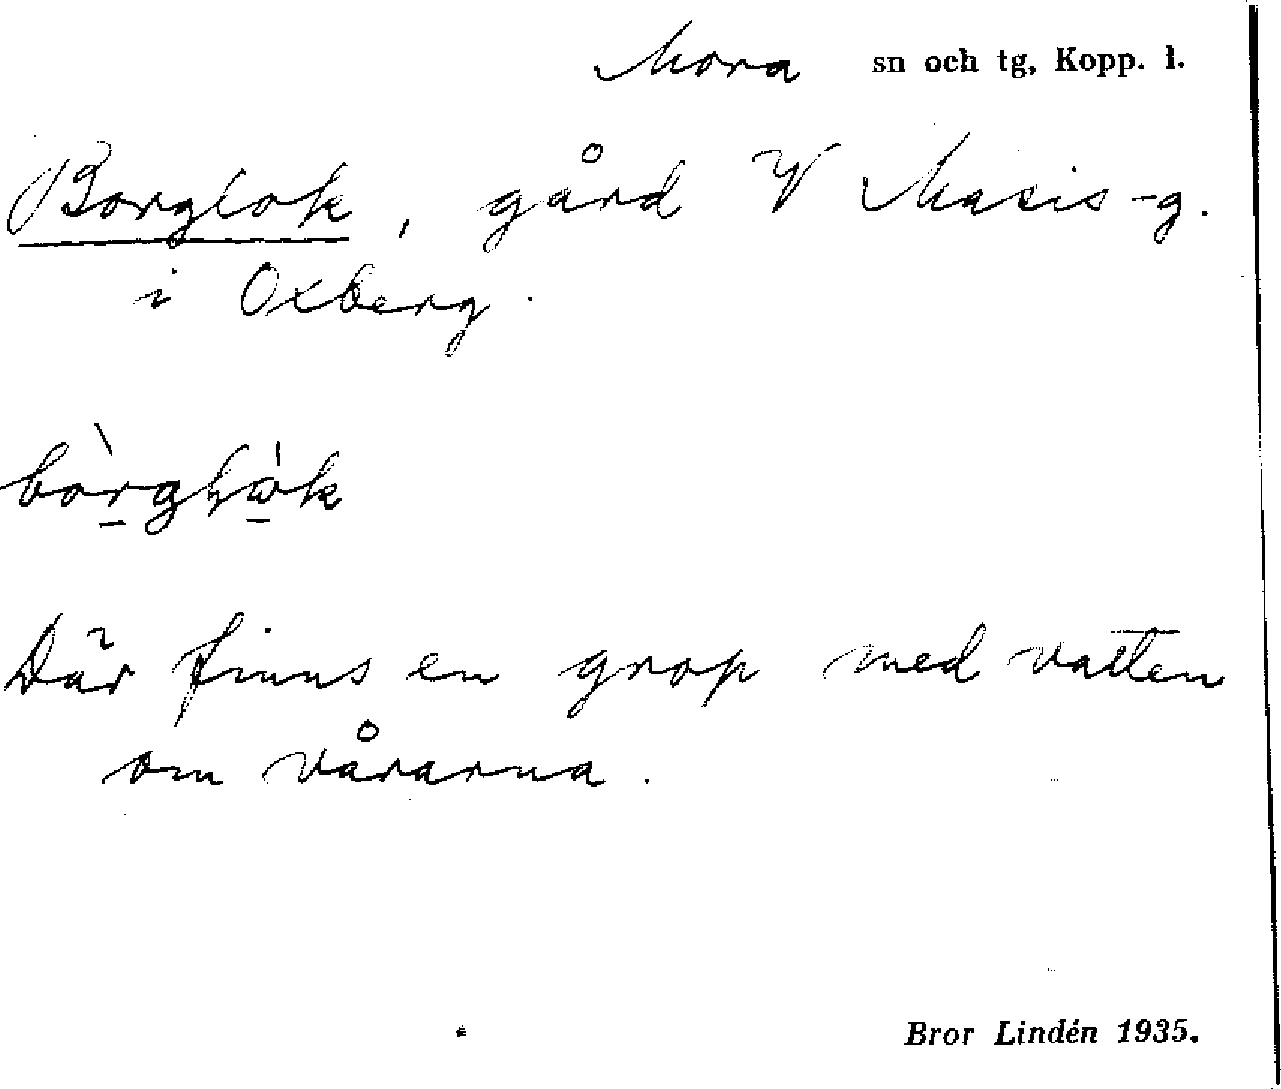 Mora sn och tg, Kopp. l.
Borglok, gård V Masis-g.
i Oxberg.
Där finns en grop med vatten
om vårarna.
Bror Lindén 1935.